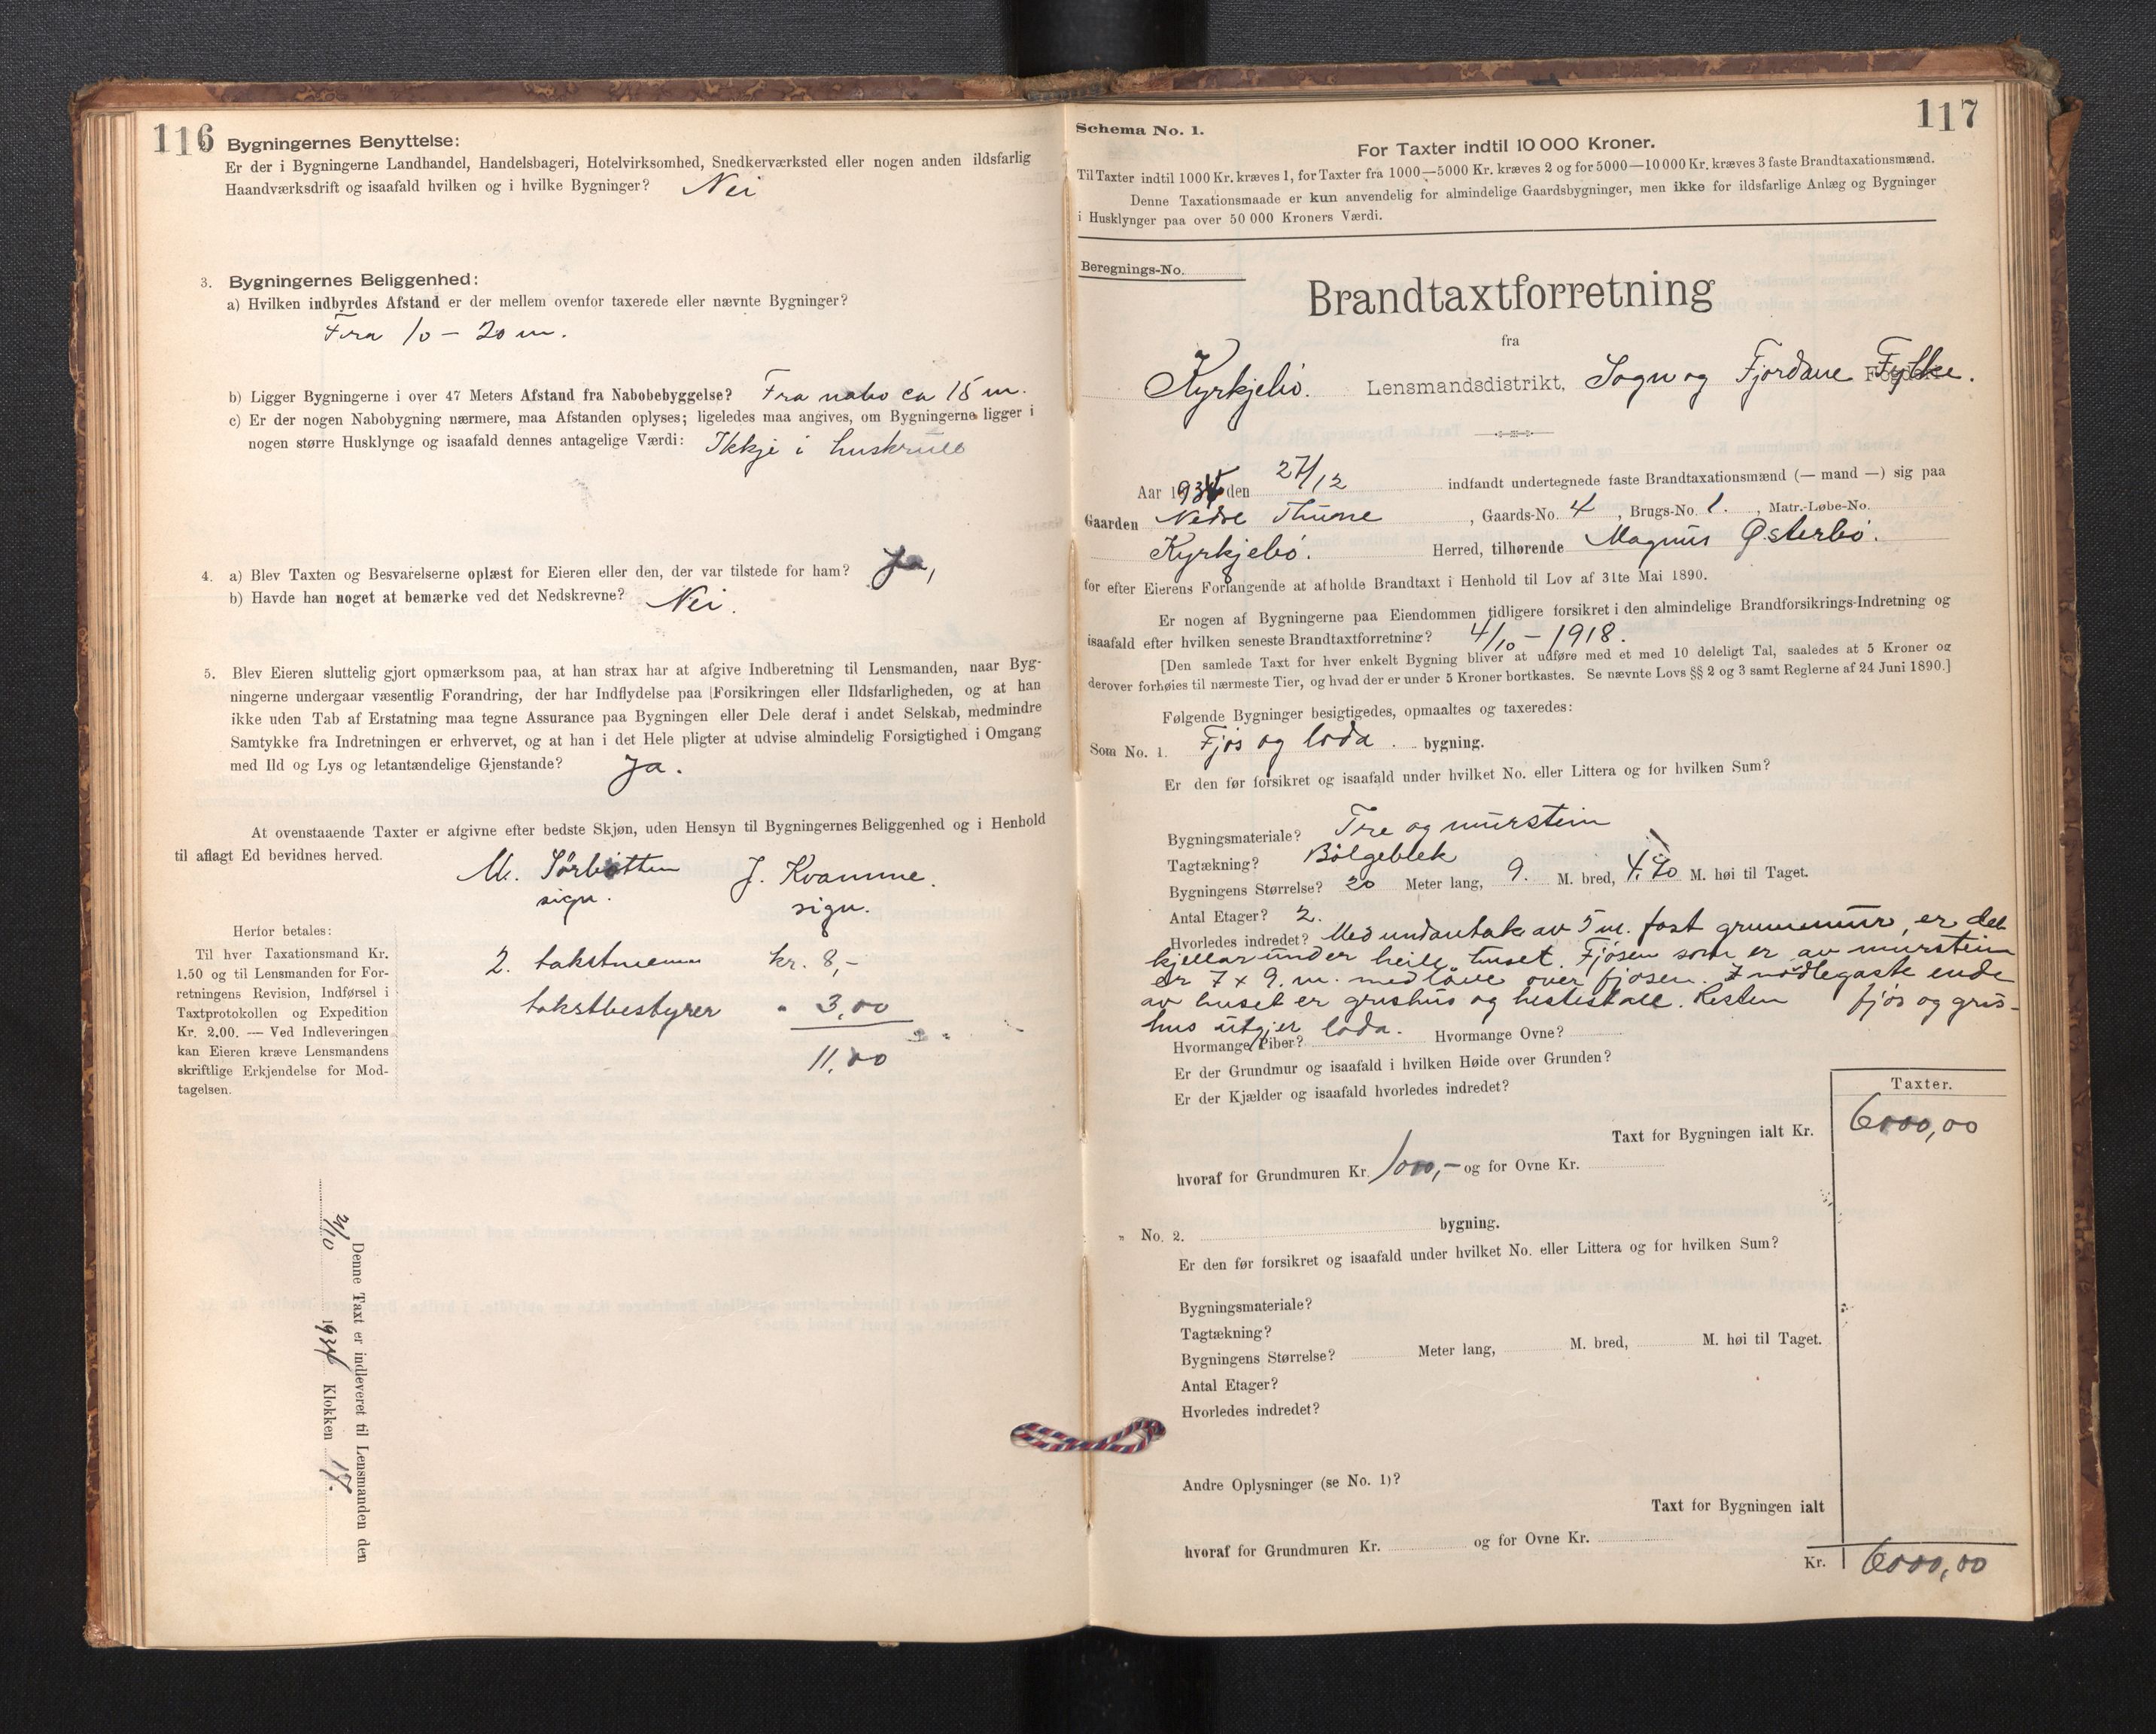 116
Bygningernes Benyttelse:
Er der i Bygningerne Landhandel, Handelsbageri, Hotelvirksomhed, Snedkerværksted eller nogen anden ildsfarlig
Haandværksdrift og isaafald hvilken og i hvilke Bygninger? Nei
3. Bygningernes Beliggenhed:
a) Hvilken indbyrdes Afstand er der mellem ovenfor taxerede eller nævnte Bygninger?
Fra 10 – 20 m.
b) Ligger Bygningerne i over 47 Meters Afstand fra Nabobebyggelse? Fra nabo ca 15 m.
c) Er der nogen Nabobygning nærmere, maa Afstanden oplyses; ligeledes maa angives, om Bygningerne ligger i
nogen større Husklynge og isaafald dennes antagelige Værdi: Ikkje i huskrull
4. a) Blev Taxten og Besvarelserne oplæst for Eieren eller den, der var tilstede for ham? Ja,
b) Havde han noget at bemærke ved det Nedskrevne? Nei.
5. Blev Eieren sluttelig gjort opmærksom paa, at han strax har at afgive Indberetning til Lensmanden, naar Byg-
ningerne undergaar væsentlig Forandring, der har Indflydelse paa Forsikringen eller Ildsfarligheden, og at han
ikke uden Tab af Erstatning maa tegne Assurance paa Bygningen eller Dele deraf i andet Selskab, medmindre
Samtykke fra Indretningen er erhvervet, og at han i det Hele pligter at udvise almindelig Forsigtighed i Omgang
med Ild og Lys og letantændelige Gjenstande? Ja.
At ovenstaaende Taxter er afgivne efter bedste Skjøn, uden Hensyn til Bygningernes Beliggenhed og i Henhold
til aflagt Ed bevidnes herved.
M. Sörbotten J. Kvamme.
sign. sign.
Herfor betales:
Til hver Taxationsmand Kr.
1.50 og til Lensmanden for For-
retningens Revision, Indførsel i
Taxtprotokollen og Expedition
Kr. 2.00. — Ved Indleveringen
kan Eieren kræve Lensmandens
skriftlige Erkjendelse for Mod-
tagelsen.
2. takstmenn kr. 8,-
takstbestyrer " 3,00
11,00
Denne Taxt er indleveret til Lensmanden den
2/10 1934 Klokken 17.
117
Schema No. 1.
For Taxter indtil 10 000 Kroner.
Til Taxter indtil 1000 Kr. kræves 1, for Taxter fra 1000—5000 Kr. kræves 2 og for 5000—10 000 Kr. kræves 3 faste Brandtaxationsmænd.
Denne Taxationsmaade er kun anvendelig for almindelige Gaardsbygninger, men ikke for ildsfarlige Anlæg og Bygninger
i Husklynger paa over 50 000 Kroners Værdi.
Beregnings-No.
Brandtaxtforretning
fra
Kyrkjebö. Lensmandsdistrikt, Sogn og Fjordane Fylke.
Aar 1934 den 27/12 indfandt undertegnede faste Brandtaxationsmænd (— mand —) sig paa
Gaarden Nedre Thune, Gaards-No. 4, Brugs-No. 1., Matr.-Løbe-No.
Kyrkjebö. Herred, tilhørende Magnus Østerbö.
for efter Eierens Forlangende at afholde Brandtaxt i Henhold til Lov af 31te Mai 1890.
Er nogen af Bygningerne paa Eiendommen tidligere forsikret i den almindelige Brandforsikrings-Indretning og
isaafald efter hvilken seneste Brandtaxtforretning? 4/10 – 1918.
[Den samlede Taxt for hver enkelt Bygning bliver at udføre med et med 10 deleligt Tal, saaledes at 5 Kroner og
derover forhøies til nærmeste Tier, og hvad der er under 5 Kroner bortkastes. Se nævnte Lovs §§ 2 og 3 samt Reglerne af 24 Juni 1890.]
Følgende Bygninger besigtigedes, opmaaltes og taxeredes:
Som No. 1. Fjøs og löda. bygning.
Er den før forsikret og isaafald under hvilket No. eller Littera og for hvilken Sum?
Bygningsmateriale? Tre og murstein
Tagtækning? Bölgeblek
Bygningens Størrelse? 20 Meter lang, 9. M. bred, 4,40 M. høi til Taget.
Antal Etager? 2.
Hvorledes indredet? Med undantak av 5 m. fast grunnmur, er det
kjellar under heile huset. Fjösen som er av murstein
er 7 x 9. m. med löve over fjösen. I nordlegaste ende
av huset er grishus og hestestall. Resten fjøs og gris-
hus utgjer löda.
Hvormange Piber? Hvormange Ovne?
Er der Grundmur og isaafald i hvilken Høide over Grunden?
Er der Kjælder og isaafald hvorledes indredet?
Taxter.
Taxt for Bygningen ialt Kr. 6000,00
hvoraf for Grundmuren Kr. 1000,- og for Ovne Kr.
" No. 2. bygning.
Er den før forsikret og isaafald under hvilket No. eller Littera og for hvilken Sum?
Bygningsmateriale?
Tagtækning?
Bygningens Størrelse? Meter lang, M. bred, M. høi til Taget.
Antal Etager?
Hvorledes indredet?
Andre Oplysninger (se No. 1)?
Taxt for Bygningen ialt
hvoraf for Grundmuren Kr. og for Ovne Kr.
Kr. 6000,00